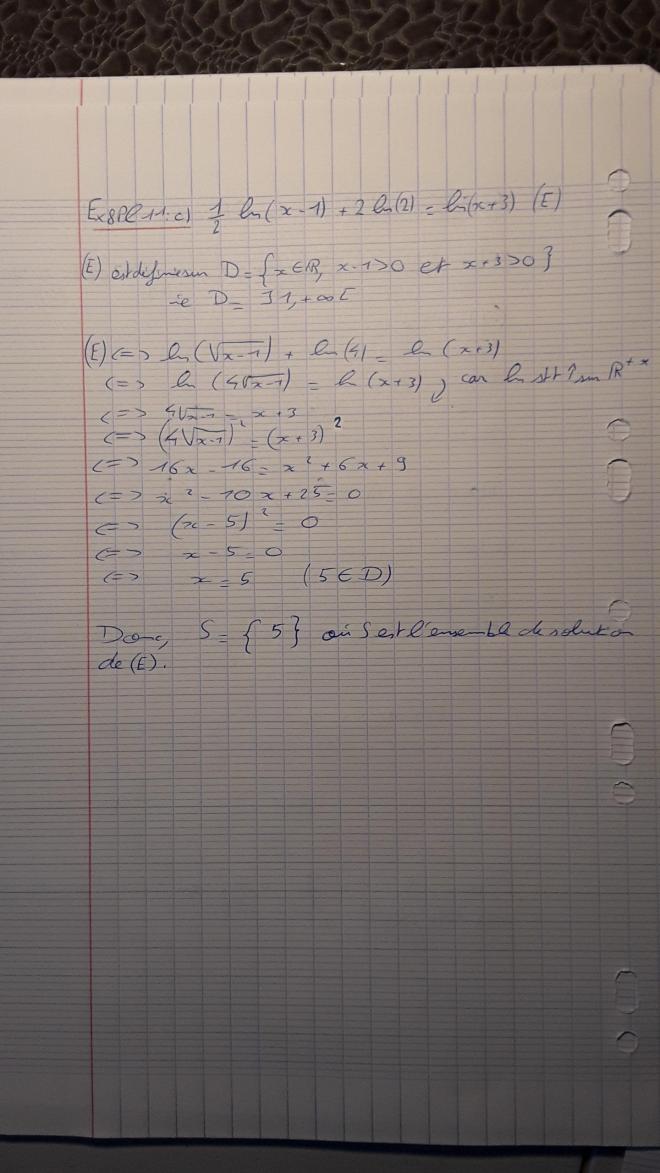 Ex8Pl11.c) 1/2 ln(x-1) + 2 ln(2) = ln(x+3) (E)
(E) est définie sur D = {x∈ℝ, x-1>0 et x+3>0}
ie D = ]1,+∞[
(E) <=> ln(√(x-1)) + ln(4) = ln(x+3)
<=> ln(4√(x-1)) = ln(x+3) car ln stt ↑ sur ℝ⁺*
<=> 4√(x-1) = x+3
<=> (4√(x-1))² = (x+3)²
<=> 16x - 16 = x² + 6x + 9
<=> x² - 10x + 25 = 0
<=> (x-5)² = 0
<=> x-5 = 0
<=> x = 5 (5∈D)
Donc, S = {5} où S est l'ensemble de solution
de (E).